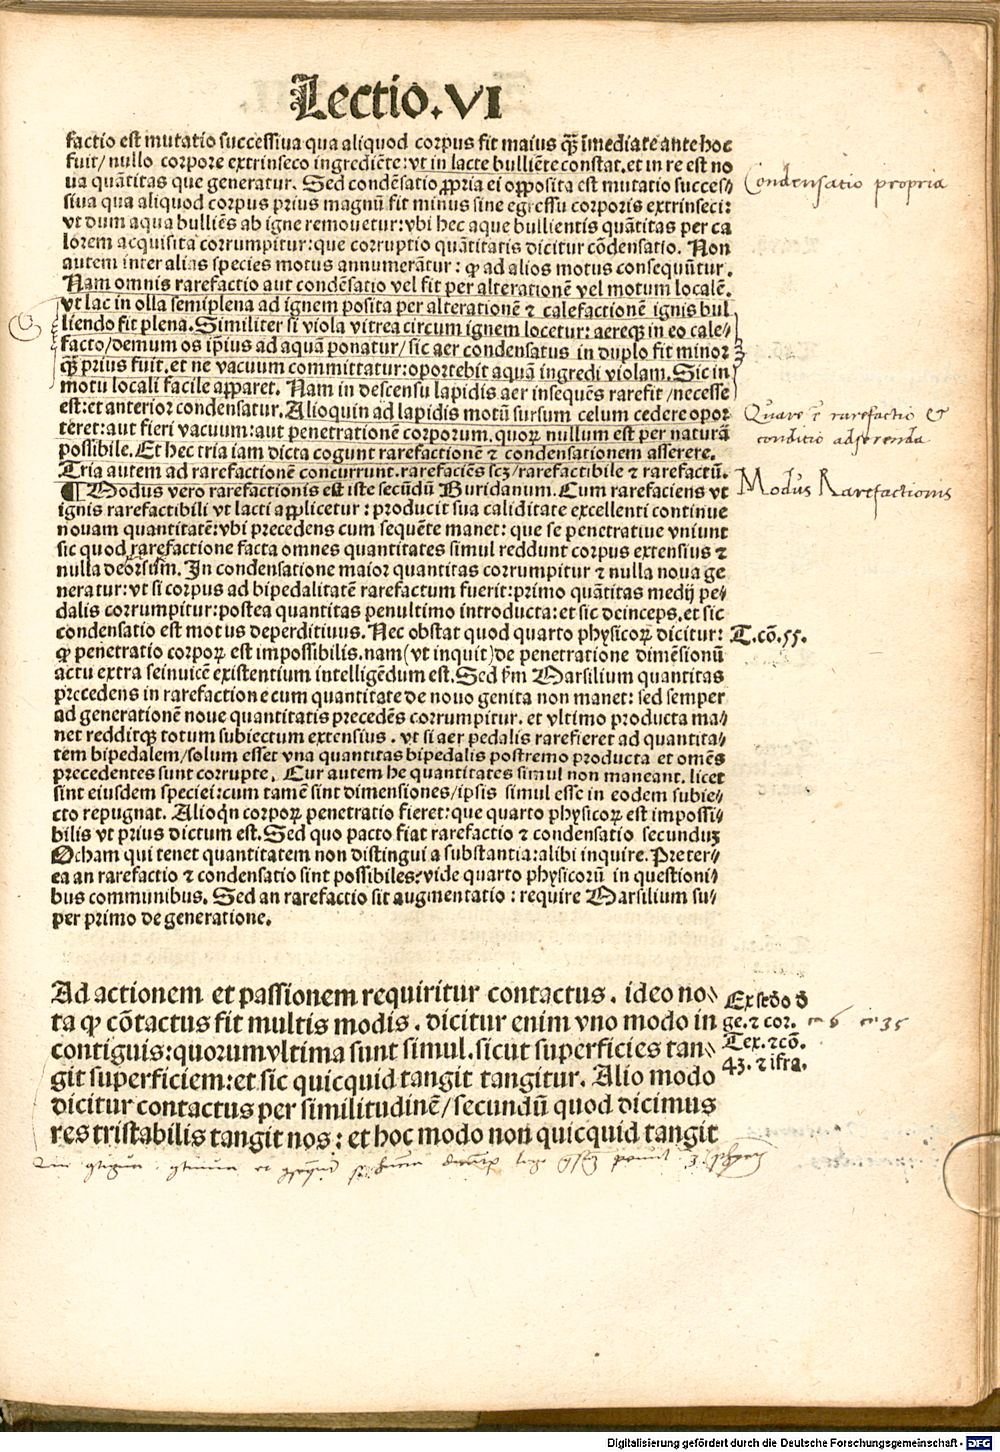 Lectio. VI
factio est mutatio successiua qua aliquod corpus fit maius qꝫ̄ īmediate ante hoc
fuit/ nullo corpore extrinseco ingrediēte: vt in lacte bulliēte constat. et in re est no
ua quātitas que generatur. Sed condēsatio ꝓpria ei opposita est mutatio succes⸗
siua qua aliquod corpus prius magnū fit minus sine egressu corporis extrinseci:
vt dum aqua bulliēs ab igne remouetur: vbi hec aque bullientis quātitas per ca
lorem acquisita corrumpitur: que corruptio quātitatis dicitur cōdensatio. Non
autem inter alias species motus annumerātur: ꝙ ad alios motus consequūtur.
Nam omnis rarefactio aut condēsatio vel fit per alterationē vel motum localē.
vt lac in olla semiplena ad ignem posita per alterationē ⁊ calefactionē ignis bul
liendo fit plena. Similiter si viola vitrea circum ignem locetur: aereqꝫ in eo cale⸗
facto/ demum os ip̄ius ad aquā ponatur/ sic aer condensatus in duplo fit minor
qꝫ̄ prius fuit. et ne vacuum committatur: oportebit aquā ingredi violam. Sic in
motu locali facile apparet. Nam in descensu lapidis aer insequēs rarefit/ necesse
est: et anterior condensatur. Alioquin ad lapidis motū sursum celum cedere opor
teret: aut fieri vacuum: aut penetrationē corporum. quoꝝ nullum est per naturā
possibile. Et hec tria iam dicta cogunt rarefactionē ⁊ condensationem asserere.
Tria autem ad rarefactionē concurrunt. rarefaciēs scꝫ/ rarefactibile ⁊ rarefactū.
¶ Modus vero rarefactionis est iste secūdū Buridanum. Cum rarefaciens vt
ignis rarefactibili vt lacti applicetur: producit sua caliditate excellenti continue
nouam quantitatē: vbi precedens cum sequēte manet: que se penetratiue vniunt
sic quod rarefactione facta omnes quantitates simul reddunt corpus extensius ⁊
nulla deorsum. In condensatione maior quantitas corrumpitur ⁊ nulla noua ge
neratur: vt si corpus ad bipedalitatē rarefactum fuerit: primo quātitas medij pe⸗
dalis corrumpitur: postea quantitas penultimo introducta: et sic deinceps. et sic
condensatio est motus deperditiuus. Nec obstat quod quarto physicoꝝ dicitur:
ꝙ penetratio corpoꝝ est impossibilis. nam (vt inquit) de penetratione dimēsionū
actu extra seinuicē existentium intelligēdum est. Sed ẜm Marsilium quantitas
precedens in rarefactione cum quantitate de nouo genita non manet: sed semper
ad generationē noue quantitatis precedēs corrumpitur. et vltimo producta ma⸗
net redditqꝫ totum subiectum extensius. vt si aer pedalis rarefieret ad quantita⸗
tem bipedalem/ solum esset vna quantitas bipedalis postremo producta et omēs
precedentes sunt corrupte. Cur autem he quantitates simul non maneant. licet
sint eiusdem speciei: cum tamē sint dimensiones/ ipsis simul esse in eodem subie⸗
cto repugnat. Alioqͥn corpoꝝ penetratio fieret: que quarto physicoꝝ est impossi⸗
bilis vt prius dictum est. Sed quo pacto fiat rarefactio ⁊ condensatio secunduꝫ
Ocham qui tenet quantitatem non distingui a substantia: alibi inquire. Preter⸗
ea an rarefactio ⁊ condensatio sint possibiles: vide quarto physicorū in questioni⸗
bus communibus. Sed an rarefactio sit augmentatio: require Marsilium su⸗
per primo de generatione.
Condensatio propria
Quare est rarefactio et
conditio adserenda
Modus Rarefactionis
T. cō. 55.
Ad actionem et passionem requiritur contactus. ideo no⸗
ta ꝙ cōtactus fit multis modis. dicitur enim vno modo in
contiguis: quorum vltima sunt simul. sicut superficies tan⸗
git superficiem: et sic quicquid tangit tangitur. Alio modo
dicitur contactus per similitudinē/ secundū quod dicimus
res tristabilis tangit nos: et hoc modo non quicquid tangit
Ex sēdo d̄
ge. ⁊ cor.
Tex. ⁊ cō.
43. ⁊ īfra.
Digitalisierung gefördert durch die Deutsche Forschungsgemeinschaft - DFG